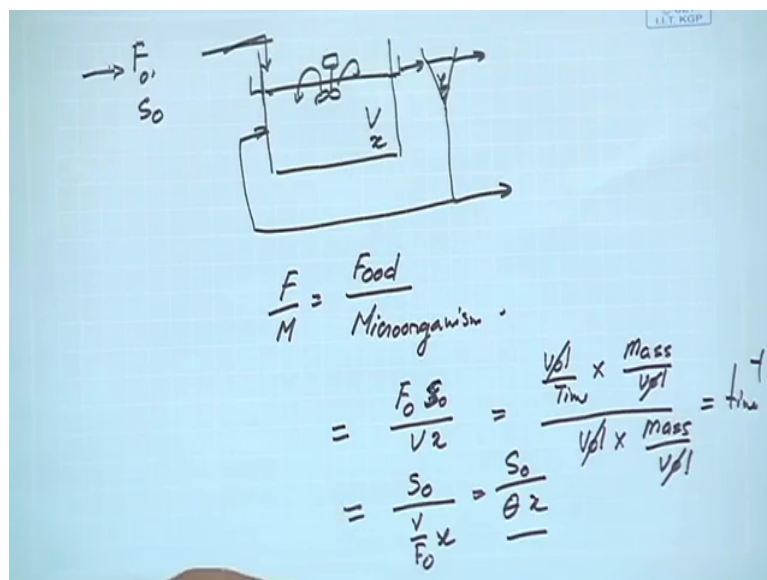 I.I.T. KGP
→ F₀,
S₀
V
x
F/M = Food/Microorganism.
= F₀ S₀/V x = (Vol/Time × Mass/Vol)/(Vol × Mass/Vol) = time⁻¹
= S₀/((V/F₀) x) = S₀/(θ x)